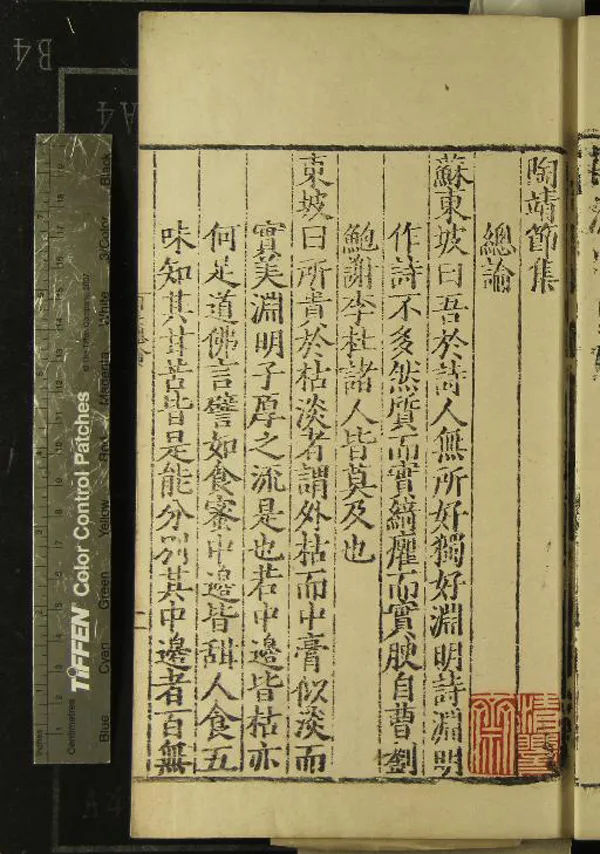 陶靖節集
總論
蘇東坡曰吾於詩人無所好獨好淵明詩淵明
作詩不多然質而實綺癯而實腴自曹劉
鮑謝李杜諸人皆莫及也
東坡曰所貴於枯淡者謂外枯而中膏似淡而
實美淵明子厚之流是也若中邊皆枯亦
何足道佛言譬如食蜜中邊皆甜人食五
味知其甘苦皆是能分別其中邊者百無
B4
A4
TIFFEN Color Control Patches
© The Tiffen Company, 2007
Inches
Centimetres
Blue
Cyan
Green
Yellow
Red
Magenta
White
3/Color
Black